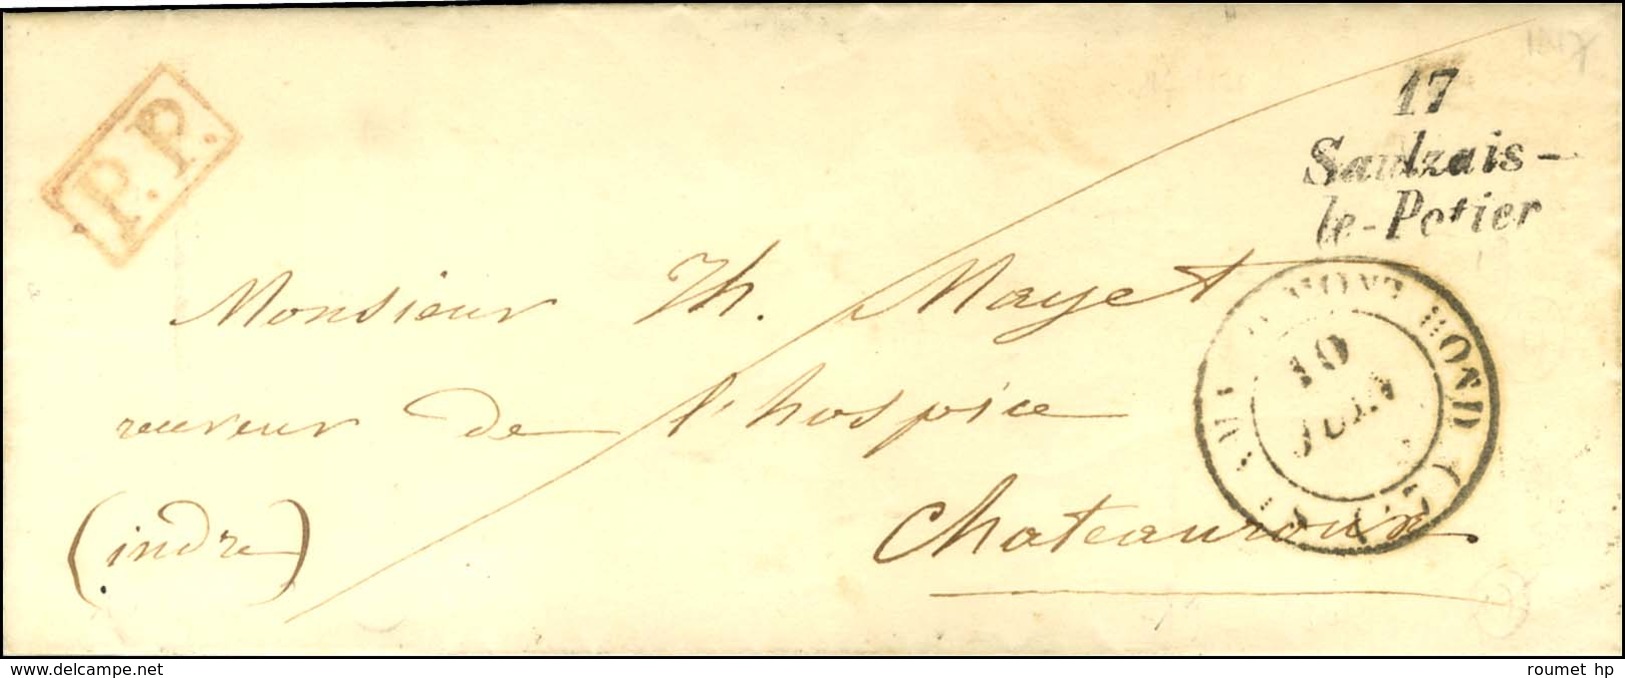 P.P.
17
Saulzais-
le-Potier
Monsieur Th. Mayet
receveur de l'hospice
(indre) Chateauroux
MONT-ROND (17)
10
JUIN
www.delcampe.net
roumet hp